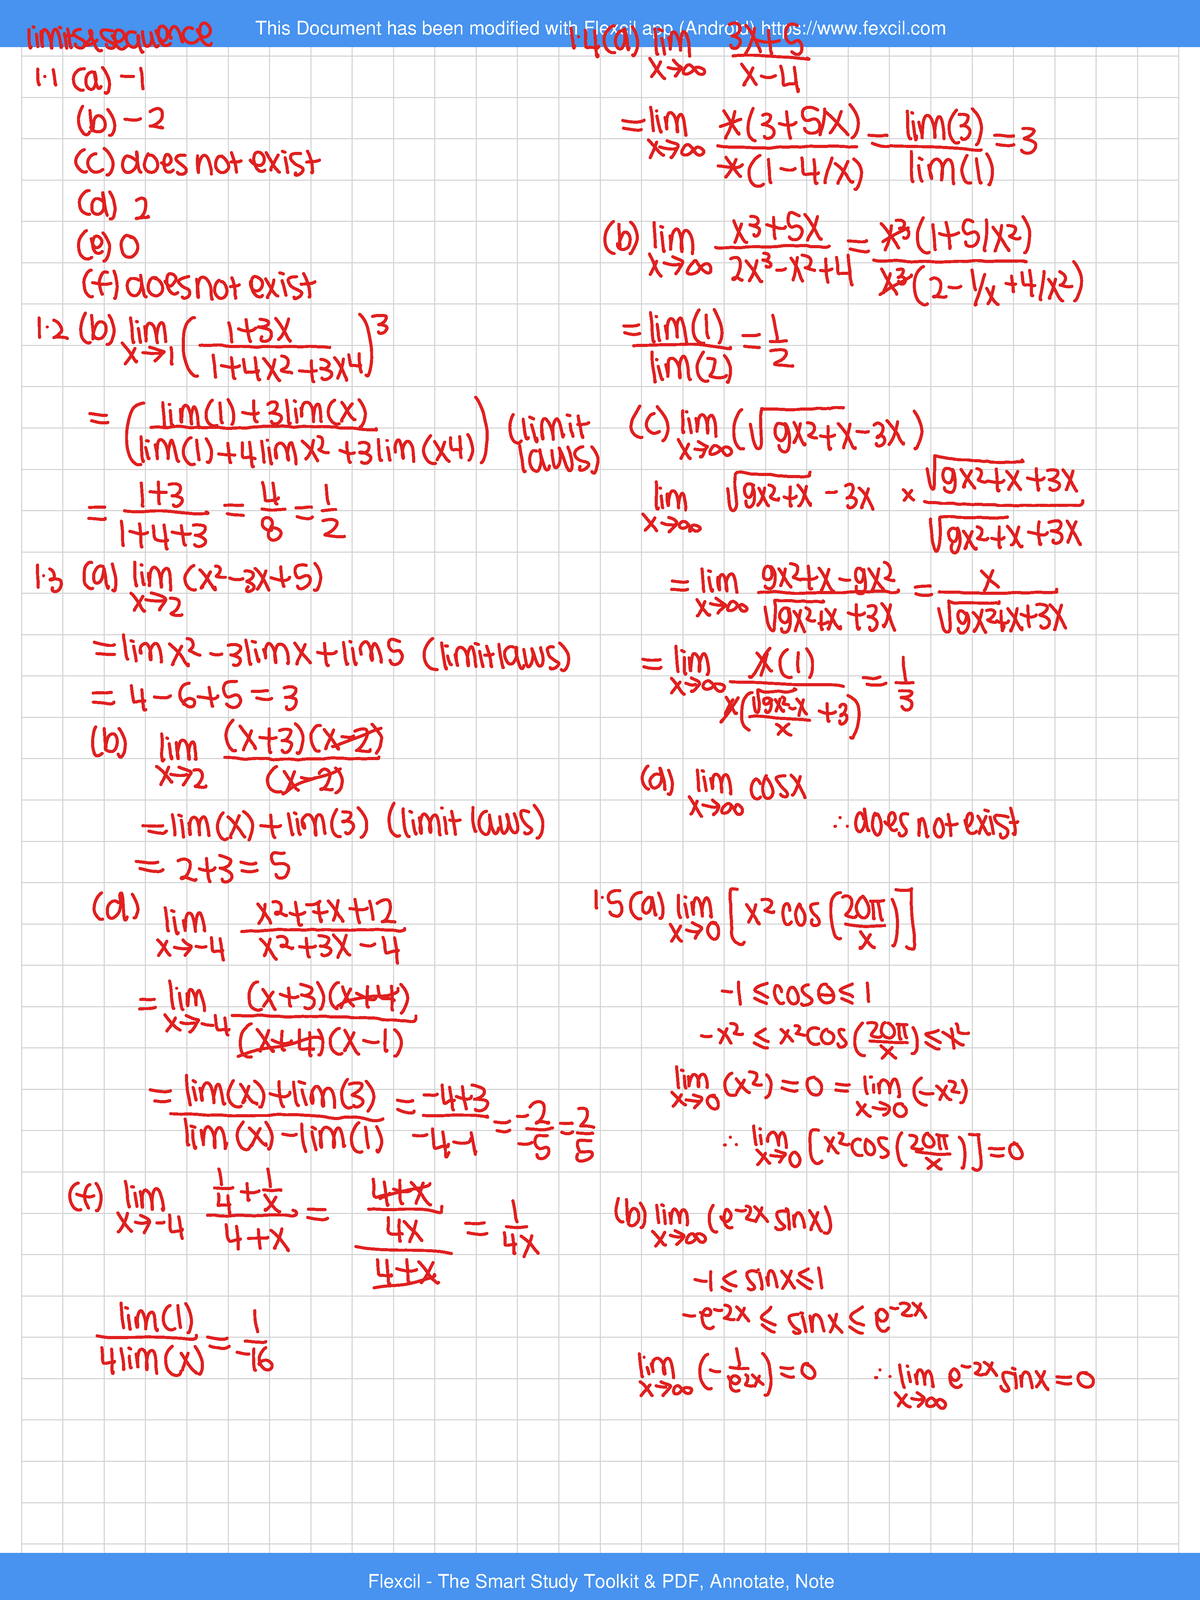 This Document has been modified with Flexcil app (Android) https://www.fexcil.com
limits & sequence
1.1 (a) -1
(b) -2
(c) does not exist
(d) 2
(e) 0
(f) does not exist
1.2 (b) lim x→1 ( (1+3x) / (1+4x²+3x⁴) )³
= ( (lim(1)+3lim(x)) / (lim(1)+4limx²+3lim(x4)) ) (limit laws)
= (1+3)/(1+4+3) = 4/8 = 1/2
1.3 (a) lim x→2 (x²-3x+5)
= limx² - 3limx + lim5 (limit laws)
= 4-6+5 = 3
(b) lim x→2 (x+3)(x-2) / (x-2)
= lim(x)+lim(3) (limit laws)
= 2+3 = 5
(d) lim x→-4 (x²+7x+12) / (x²+3x-4)
= lim x→-4 (x+3)(x+4) / (x+4)(x-1)
= (lim(x)+lim(3)) / (lim(x)-lim(1)) = (-4+3)/(-4-1) = -2/-5 = 2/5
(f) lim x→-4 (1/4 + 1/x) / (4+x) = ((4+x)/4x) / (4+x) = 1/4x
lim(1) / 4lim(x) = 1/-16
1.4 (a) lim x→∞ (3x+5) / (x-4)
= lim x→∞ x(3+5/x) / x(1-4/x) = lim(3)/lim(1) = 3
(b) lim x→∞ (x³+5x) / (2x³-x²+4) = x³(1+5/x²) / x³(2-1/x+4/x²)
= lim(1)/lim(2) = 1/2
(c) lim x→∞ (√9x²+x - 3x)
lim x→∞ √9x²+x - 3x × (√9x²+x + 3x) / (√9x²+x + 3x)
= lim x→∞ (9x²+x-9x²) / (√9x²+x + 3x) = x / (√9x²+x + 3x)
= lim x→∞ x(1) / x(√9x²-x/x + 3) = 1/3
(d) lim x→∞ cosx
∴ does not exist
1.5 (a) lim x→0 [x² cos(20π/x)]
-1 ≤ cosθ ≤ 1
-x² ≤ x²cos(20π/x) ≤ x²
lim x→0 (x²) = 0 = lim x→0 (-x²)
∴ lim x→0 [x²cos(20π/x)] = 0
(b) lim x→∞ (e⁻²ˣ sinx)
-1 ≤ sinx ≤ 1
-e⁻²ˣ ≤ sinx ≤ e⁻²ˣ
lim x→∞ (-1/e²ˣ) = 0 ∴ lim x→∞ e⁻²ˣ sinx = 0
Flexcil - The Smart Study Toolkit & PDF, Annotate, Note